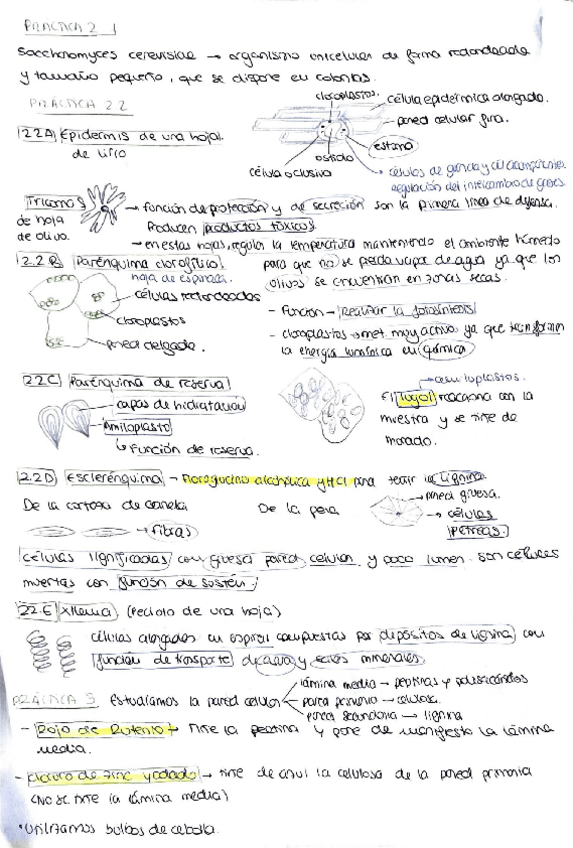 PRACTICA 2 1
Saccharomyces cerevisiae → organismo unicelular de forma redondeada
y tamaño pequeño, que se dispone en colonias.
PRACTICA 2 2
2.2A) Epidermis de una hoja
de lirio
cloroplastos.
célula epidérmica alargada.
pared celular fina.
estoma
ostiolo
célula oclusiva
células de guarda y
regulación del intercambio de gases.
Tricomas
de hoja
de olivo.
→ función de protección y de secreción son la primera línea de defensa.
Producen productos tóxicos.
→ en estas hojas, regulan la temperatura manteniendo el ambiente húmedo
para que no se pierda vapor de agua ya que los
olivos se encuentran en zonas secas.
2.2 B) Parénquima clorofílico
hoja de espinaca.
células redondeadas
cloroplastos
pared delgada.
- Función → Realizar la fotosíntesis
- cloroplastos → met. muy activo ya que transforman
la energía lumínica en química
2.2C) Parénquima de reserva
capas de hidratación
Amiloplasto
↳ Función de reserva.
amiloplastos.
El lugol reacciona con la
muestra y se tiñe de
morado.
2.2D) Esclerénquima → Floroglucino alcohólica y HCl para teñir la lignina
De la corteza de canela
fibras
De la pera
pared gruesa.
células
pétreas.
Células lignificadas con gruesa pared celular y poco lumen. Son células
muertas con función de sostén.
2.2.E) Xilema (Peciolo de una hoja)
células alargadas en espiral compuestas por depósitos de lignina con
función de transporte de agua y sales minerales
PRÁCTICA 3 Estudiamos la pared celular
lámina media → pectinas y polisacáridos
pared primaria → celulosa.
pared secundaria → lignina
- Rojo de Rutenio → Tiñe la pectina y pone de manifiesto la lámina
media.
- Cloruro de zinc yodado → tiñe de azul la celulosa de la pared primaria
(No se tiñe la lámina media)
* Utilizamos bulbos de cebolla.